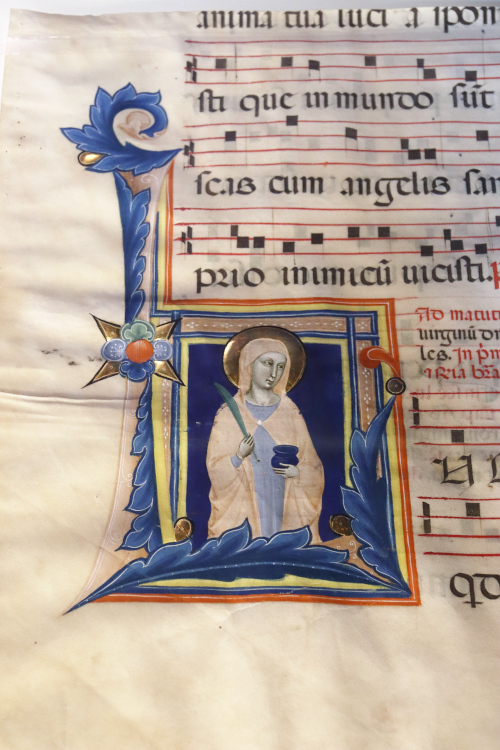 anima tua luci a ipon
sti que in mundo sūt
scas cum angelis san
prio inimicū uicisti.
Ad matuti
uirginū
les. In
qd